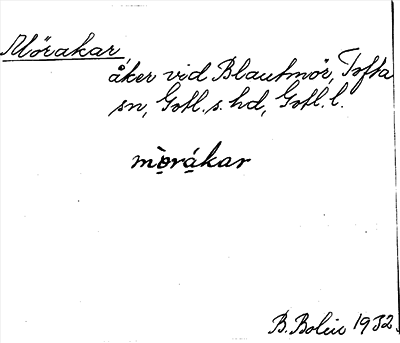 Mörakar,
åker vid Blautmör, Tofta
sn, Gotl. s. hd, Gotl. l.
mòrákar
B. Bolin 1932.